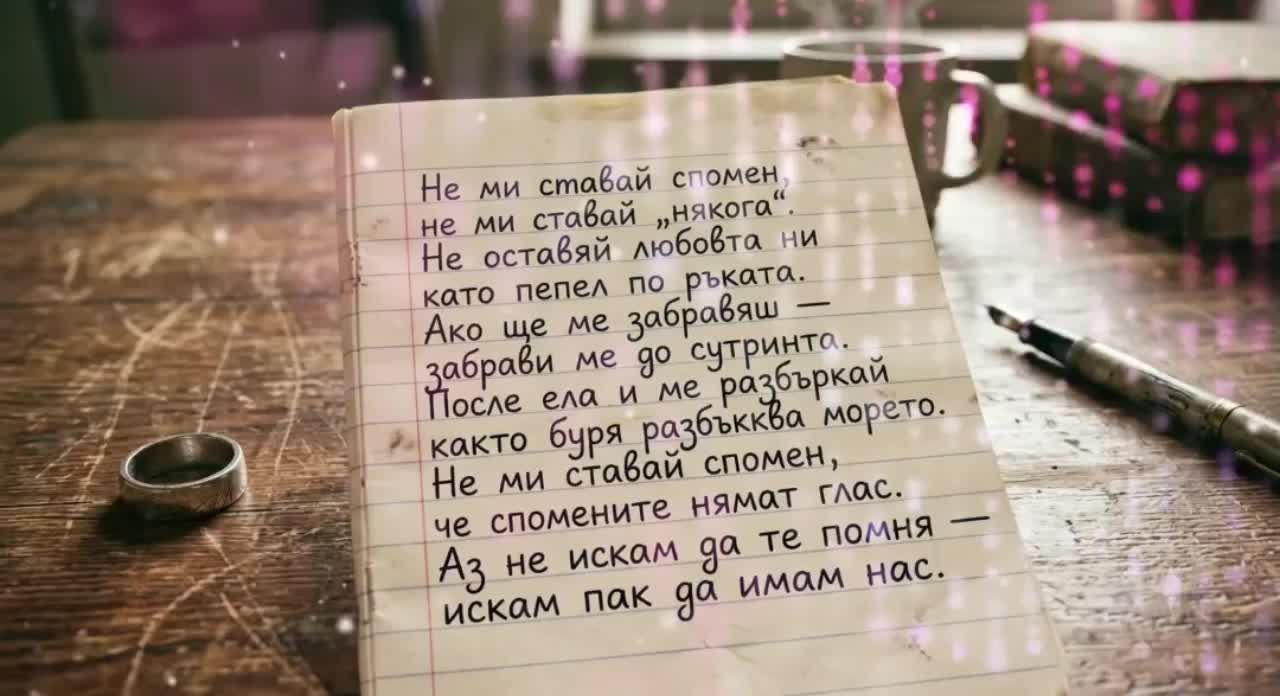 Не ми ставай спомен,
не ми ставай „някога“.
Не оставяй любовта ни
като пепел по ръката.
Ако ще ме забравяш —
забрави ме до сутринта.
После ела и ме разбъркай
както буря разбъкква морето.
Не ми ставай спомен,
че спомените нямат глас.
Аз не искам да те помня —
искам пак да имам нас.